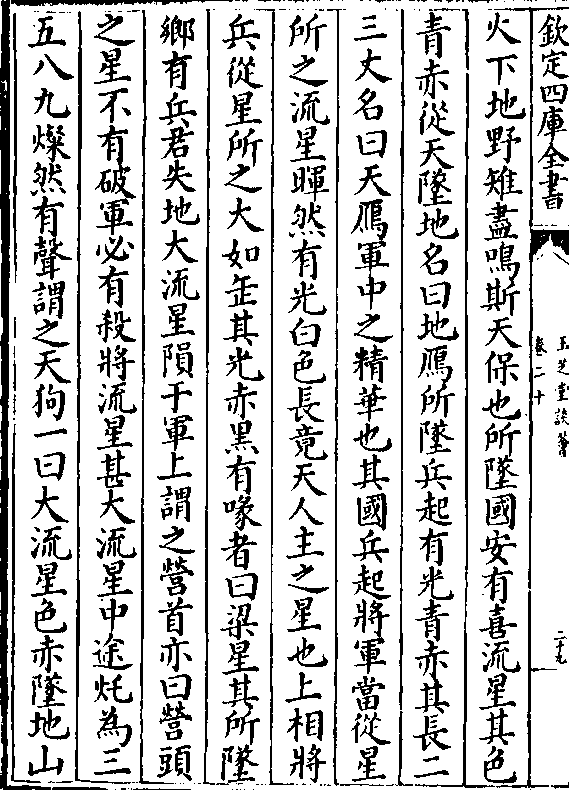 欽定四庫全書
玉芝堂談薈
卷二十
二十九
火下地野雉盡鳴斯天保也所墜國安有喜流星其色
青赤從天墜地名曰地鴈所墜兵起有光青赤其長二
三丈名曰天鴈軍中之精華也其國兵起將軍當從星
所之流星暉然有光白色長竟天人主之星也上相將
兵從星所之大如缶其光赤黑有喙者曰梁星其所墜
鄉有兵君失地大流星隕于軍上謂之營首亦曰營頭
之星不有破軍必有殺將流星甚大流星中途灹為三
五八九燦然有聲謂之天狗一曰大流星色赤墜地山